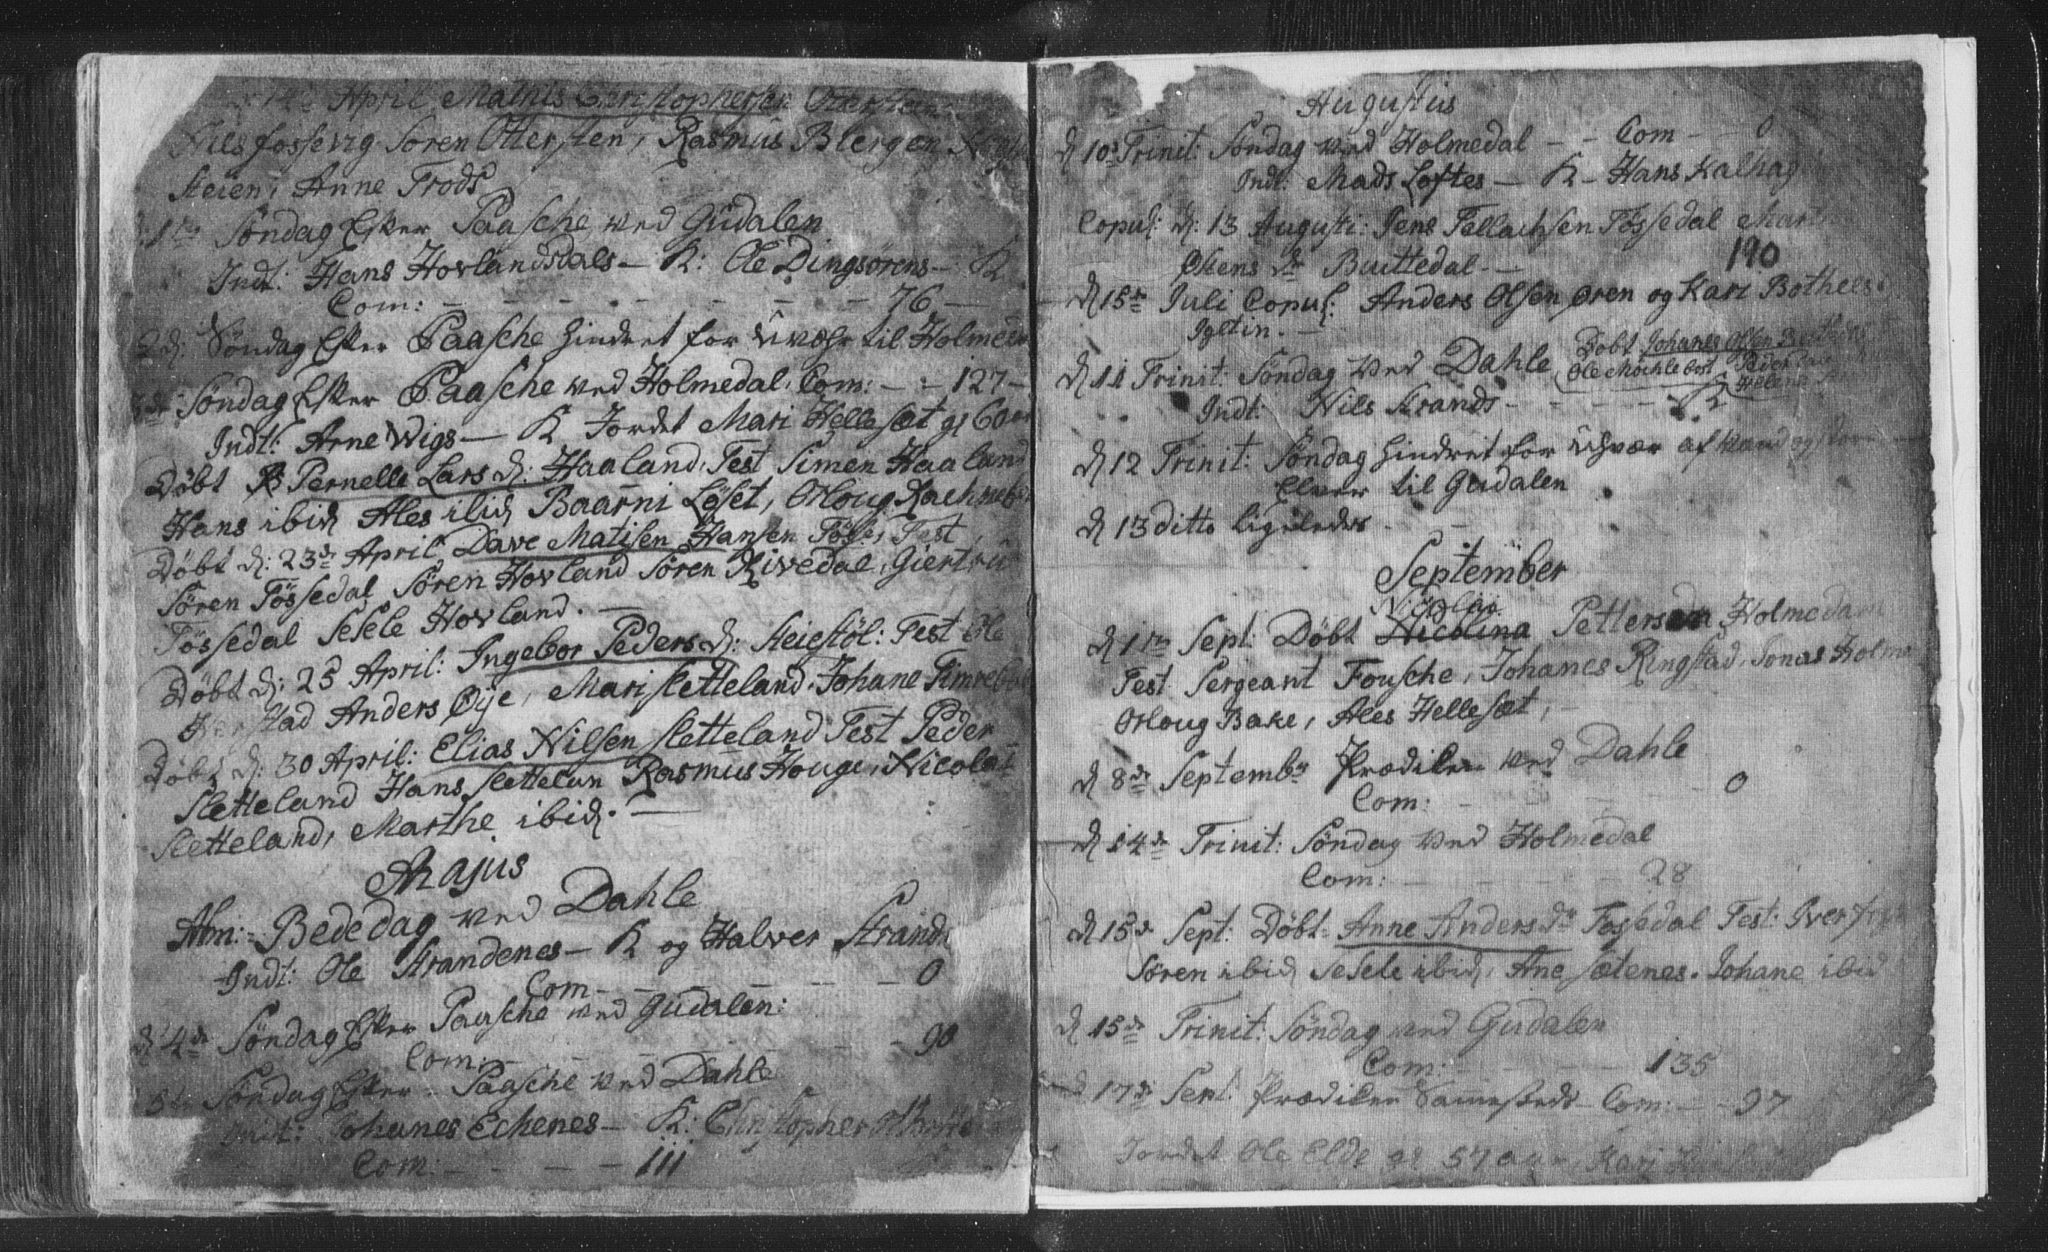 April Mathis Christophersen Ottersteen
Nils fossevig Soren Ottersten, Rasmus Bleigen
steien, Anne Frods
1ste Søndag Efter Paasche ved Gudalen
Indl: Hans Hovlandsdals — K: Ole Dingsørens — K
Com: — — — — — — 76 —
2d: Søndag Efter Paasche hindret for Uvæhr til Holmedal
3de Søndag Efter Paasche ved Holmedal. Com: — — 127 —
Indl: Arne Wigs — K Jordet Mari Hellesæt gl 60 aar
Døbt Pernelle Lars d: Haaland, Test Simen Haaland
Hans ibid Ales ibid Baarni Løset, Oloug
Døbt d: 23de April, Dave Matisen Hansen Fosse, Test
Søren Fossedal Søren Hovland Søren Rivedal, Giertru
Fossedal Sesele Hovland. —
Døbt d: 25 April: Ingebor Peders d: steiestøl: Test Ole
Anders Øije, Mari sletteland, Johane
Døbt d: 30 April: Elias Nilsen sletteland Test Peder
sletteland Hans slettelan Rasmus Houge, Nicolai
sletteland, Marthe ibid. —
Majus
Alm: Bededag ved Dahle
Indl: Ole Strandenes — K og Halver Strand
Com — — — — — 0
d 4de Søndag Efter Paasche ved Gudalen:
Com: — — — — — 90
5te Søndag Efter Paasche ved Dahle
Johanes Echenes — K: Christopher
Com — — — — 111
Augustus
d 10de Trinit: Søndag ved Holmedal — — Com — — 0
Indl: Mads Loftes — K — Hans Kalhag
Copul: d: 13 Augusti: Jens Tellachsen Fossedal Mart
Olsens dr Buttedal —
190
d 15de Juli Copul: Anders Olsen Øren og Kari Bothels
Igltin. —
d 11 Trinit: Søndag ved Dahle Døbt Johanes Olsen
Ole Mochlebost Peder
Helena
Indl: Nils strands — — — — K
d 12 Trinit: Søndag hindret for Uhvær af vand og store
Elver til Gudalen
d 13 ditto ligeledes —
September
Nicolay
d 1ste Sept: Døbt Nicolina Pettersen Holmedal
Test Sergeant Fousche, Johanes Ringstad, Jonas Holme
Oloug Bake, Ales Hellesæt, —
d 8de Septembr Prædiken ved Dahle
Com: — — — — — 0
d 14de Trinit: Søndag ved Holmedal
Com: — — — — 28
d 15de Sept: Døbt: Anne Anders dr Fossedal Test: Iver
Søren ibid Sesele ibid, Ane sætenes. Johane ibid
d 15de Trinit: Søndag ved Gudalen
Com: — — — — 135
17de Sept: Prædiken Sammesteds — Com: — — 97
Jordet Ole Elde gl 57 aar, Kari